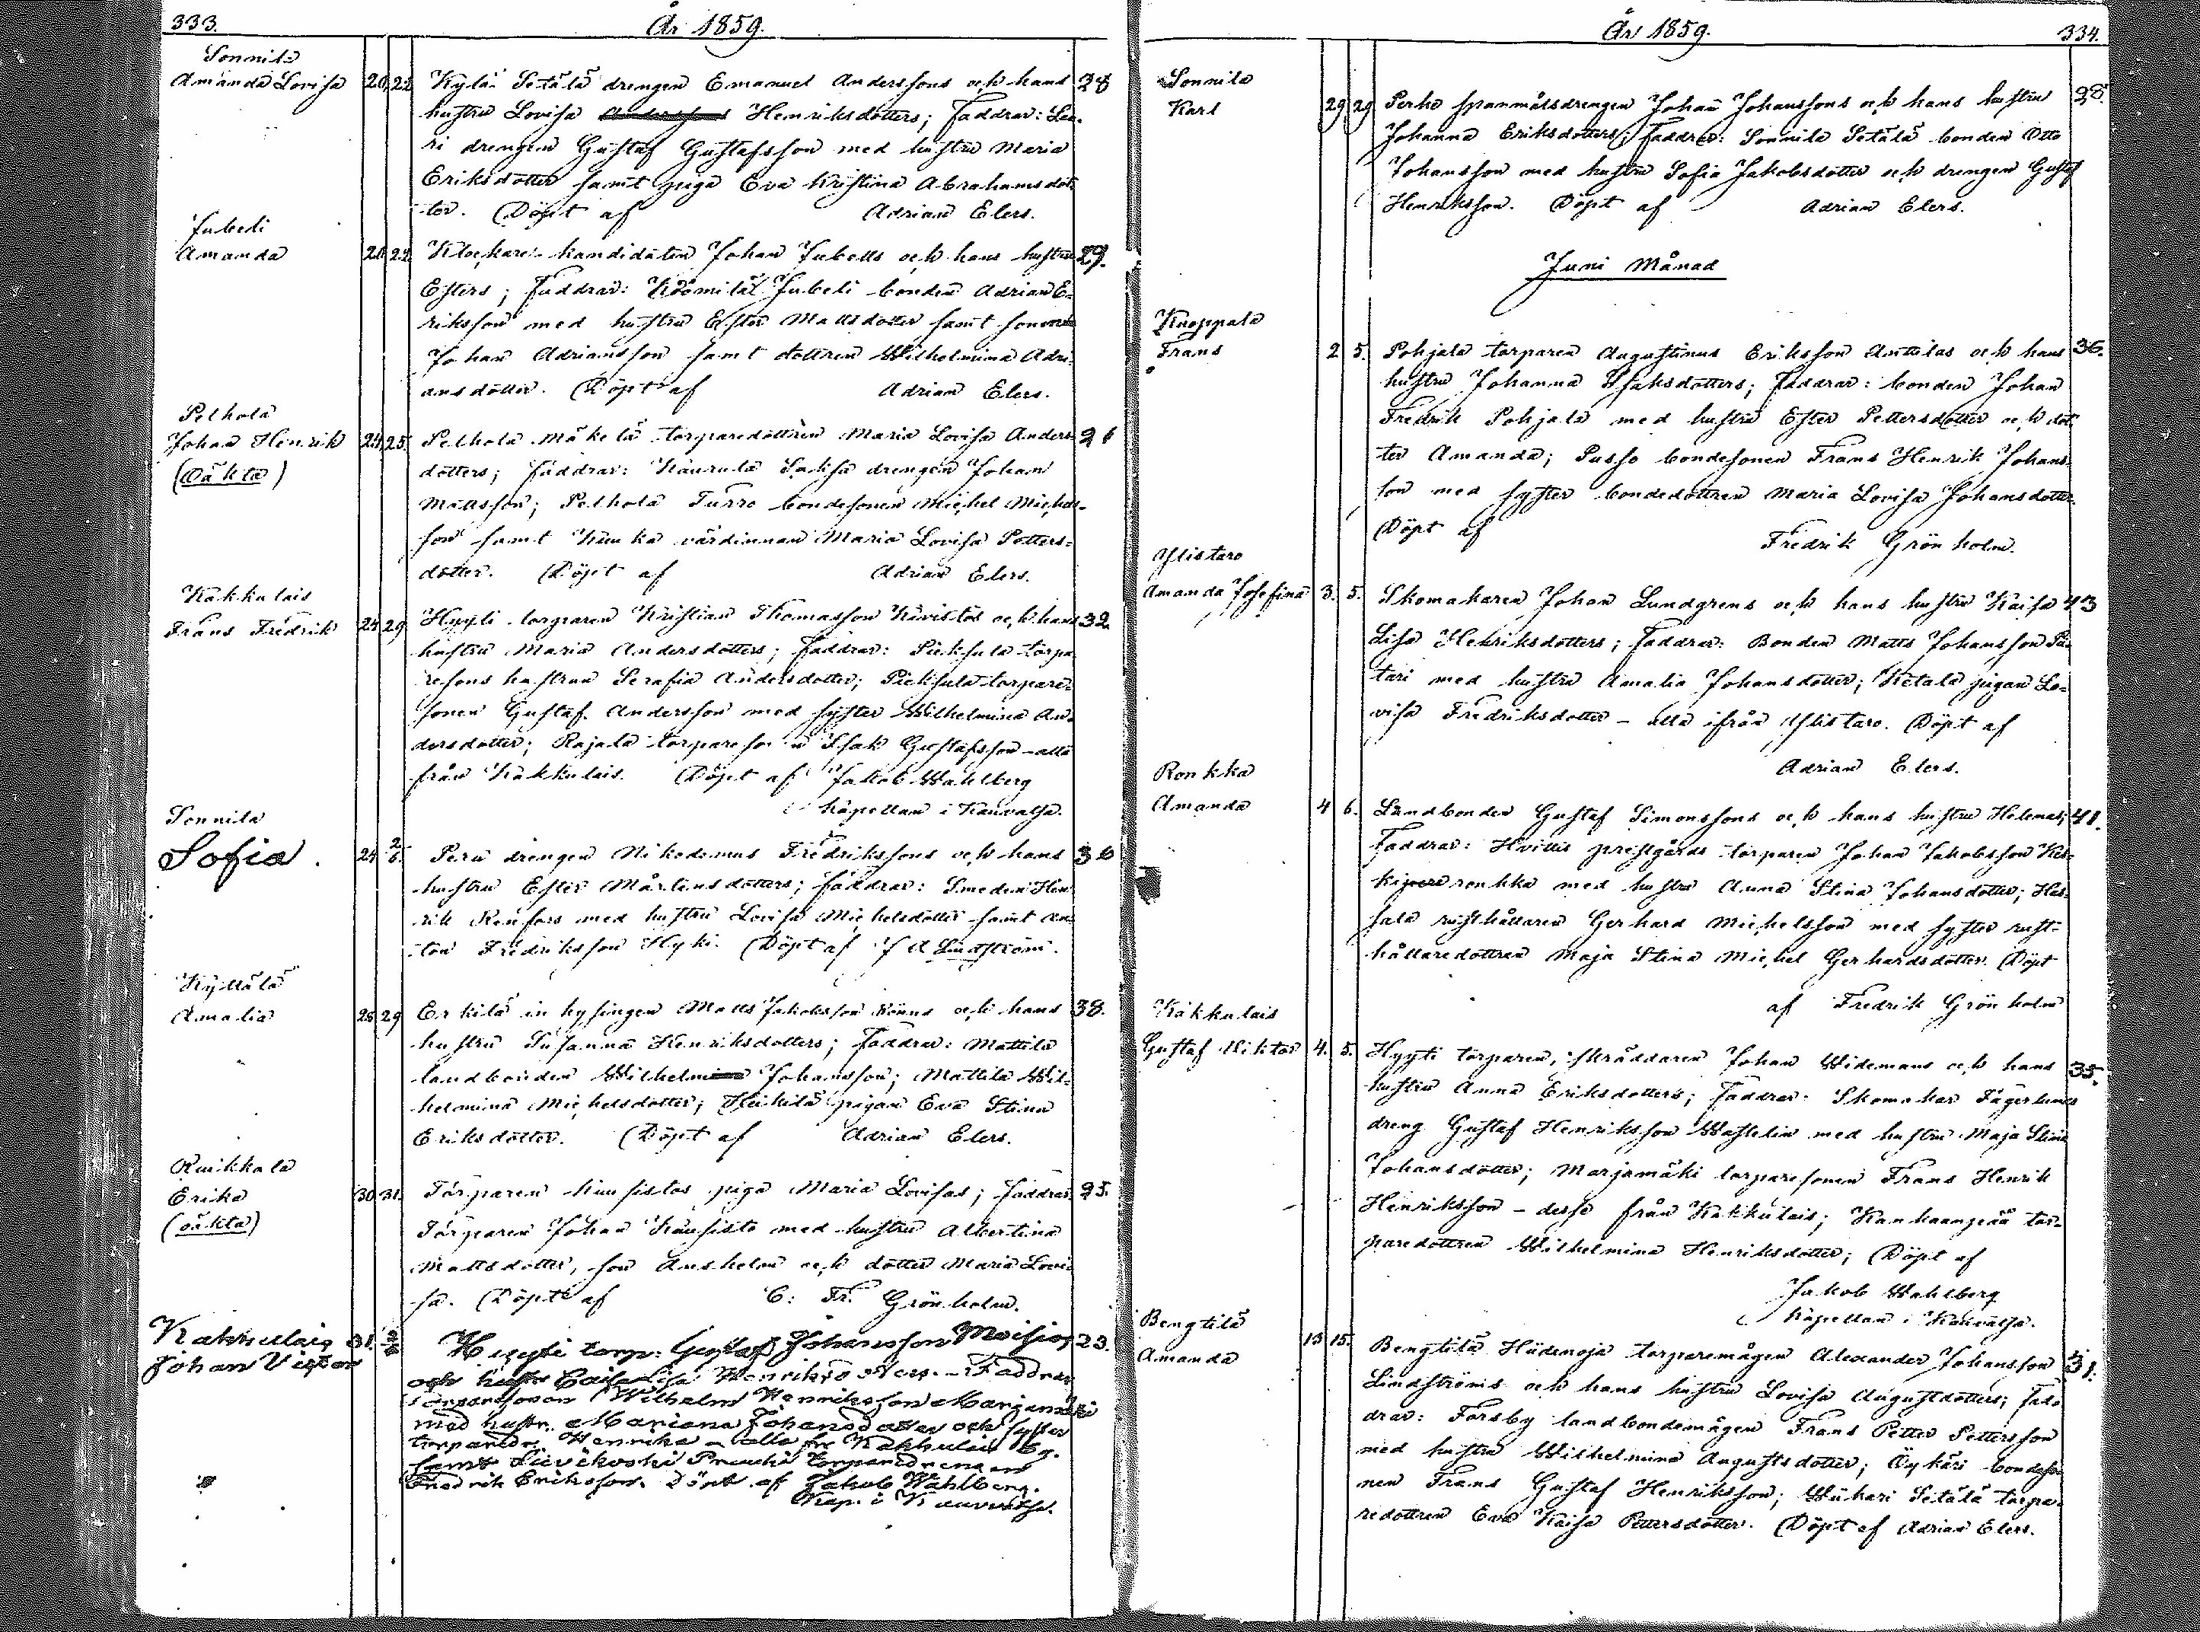 333.
År 1859.
Sonnila
Amanda Lovisa 20 22 Kylä Setälä drengen Emanuel Anderssons och hans 38
hustru Lovisa Henriksdotters; Faddrar: Lau-
ri drengen Gustaf Gustafsson med hustru Maria
Eriksdotter samt piga Eva Kristina Abrahamsdot-
ter. Döpt af Adrian Elers.
Jubeli
Amanda 21 22 Klockare-kandidaten Johan Jubells och hans hustru 29.
Esters; Faddrar: Köömilä Jubeli bonden Adrian E-
riksson med hustru Ester Mattsdotter samt sonen
Johan Adriansson samt dottren Wilhelmina Adri-
ansdotter. Döpt af Adrian Elers.
Pelhola
Johan Henrik 24 25 Pelhola Mäkelä torparedottren Maria Lovisa Anders- 21
(Oäkta) dotters; faddrar: Kaurula Saksa drengen Johan
Mattsson; Pelhola Turro bondesonen Michel Michels-
son samt värdinnan Maria Lovisa Petters-
dotter. Döpt af Adrian Elers.
Kakkulais
Frans Fredrik 24 29 Hyyti torparen Kristian Thomasson Kivistös och hans 32
hustru Maria Andersdotters; Faddrar: Pieksula torpa-
resons hustrun Serafia Andersdotter; Pieksula torpare-
sonen Gustaf Andersson med syster Wilhelmina An-
dersdotter; Rajala torpareson Isak Gustafsson - alla
från Kakkulais. Döpt af Jakob Wahlberg
Kapellan i Kauvatsa.
Sonnila
Sofia. 24 2/6. Peru drengen Nikodemus Fredrikssons och hans 36
hustru Ester Mårtensdotters; faddrar: Smeden Hen-
rik Renfors med hustru Lovisa Michelsdotter samt An-
ton Fredriksson Hyki. Döpt af J A Lindström.
Kyttälä
Amalia 26 29 Erkilä inhysingen Matts Jakobsson Rönns och hans 38.
hustru Susanna Henriksdotters; Faddrar: Mattila
landbonden Wilhelm Johansson; Mattila Wil-
helmina Michelsdotter; Heikilä pigan Eva Stina
Eriksdotter. Döpt af Adrian Elers.
Ruikkala
Erika 30 31. Torparen Kausistos piga Maria Lovisas; faddrar 25.
(oäkta) Torparen Johan Kausisto med hustru Albertina
Mattsdotter, son Anshelm och dotter Maria Lovi-
sa. Döpt af C: Fr. Grönholm.
Kakkulais 31. 2/6 Hyyti torp: Gustaf Johansson Moisios 23.
Johan Viktor och hustr Caisa Lisa Henriks - Faddrar
Torparesonen Wilhelm Henriksson Marjamäki
med hustr. Mariana Johansdotter och syster
torparedr. Henrika - alla fr Kakkulais by.
samt torparedrengen
Fredrik Eriksson. Döpt af Jakob Wahlberg.
Kap. i Kauvatsa.
År 1859.
334.
Sonnila
Karl 29 29 Perho spanmålsdrengen Johan Johanssons och hans hustru 28.
Johanna Eriksdotters; Faddrar: Sonnila Setälä bonden Otto
Johansson med hustru Sofia Jakobsdotter och drengen Gustaf
Henriksson. Döpt af Adrian Elers.
Juni Månad
Knoppala
Frans 2 5. Pohjala torparen Augustinus Eriksson Anttilas och hans 36.
hustru Johanna Isaksdotters; faddrar: bonden Johan
Fredrik Pohjala med hustru Ester Pettersdotter och dot-
ter Amanda; Susso bondesonen Frans Henrik Johans-
son med syster bondedottren Maria Lovisa Johansdotter.
Döpt af Fredrik Grönholm.
Ylistaro
Amanda Josefina 3. 5. Skomakaren Johan Lundgrens och hans hustru Kaisa 43
Lisa Henriksdotters; Faddrar: Bonden Matts Johansson Pä-
tari med hustru Amalia Johansdotter; Ketala pigan Lo-
visa Fredriksdotter - alla ifrån Ylistaro. Döpt af
Adrian Elers.
Ronkka
Amanda 4 6. Landbonden Gustaf Simonssons och hans hustru Helenas; 41.
Faddrar: Hvittis prestgårds torparen Johan Jakobsson Kes-
kironkka med hustru Anna Stina Johansdotter; Has-
sala rusthållaren Gerhard Michelsson med syster rust-
hållaredottren Maja Stina Michel Gerhardsdotter. Döpt
af Fredrik Grönholm
Kakkulais
Gustaf Viktor 4. 5. Hyyti torparen, skräddaren Johan Widemans och hans 35.
hustru Anna Eriksdotters; Faddrar: Skomakar Fagerlunds
dreng Gustaf Henriksson Wasselin med hustru Maja Stina
Johansdotter; Marjamäki torparesonen Frans Henrik
Henriksson - desse från Kakkulais; Kankaanpää tor-
paredottren Wilhelmina Henriksdotter; Döpt af
Jakob Wahlberg
Kapellan i Kauvatsa.
Bengtilä
Amanda 13 15. Bengtilä Hiidenoja torparemågen Alexander Johansson 31.
Lindströms och hans hustru Lovisa Augustdotters; fad-
drar: Forsby landbondemågen Frans Petter Pettersson
med hustru Wilhelmina Augustsdotter; Öykäri bondeso-
nen Frans Gustaf Henriksson; Wiikari Setälä torpa-
redottren Eva Kaisa Pettersdotter. Döpt af Adrian Elers.